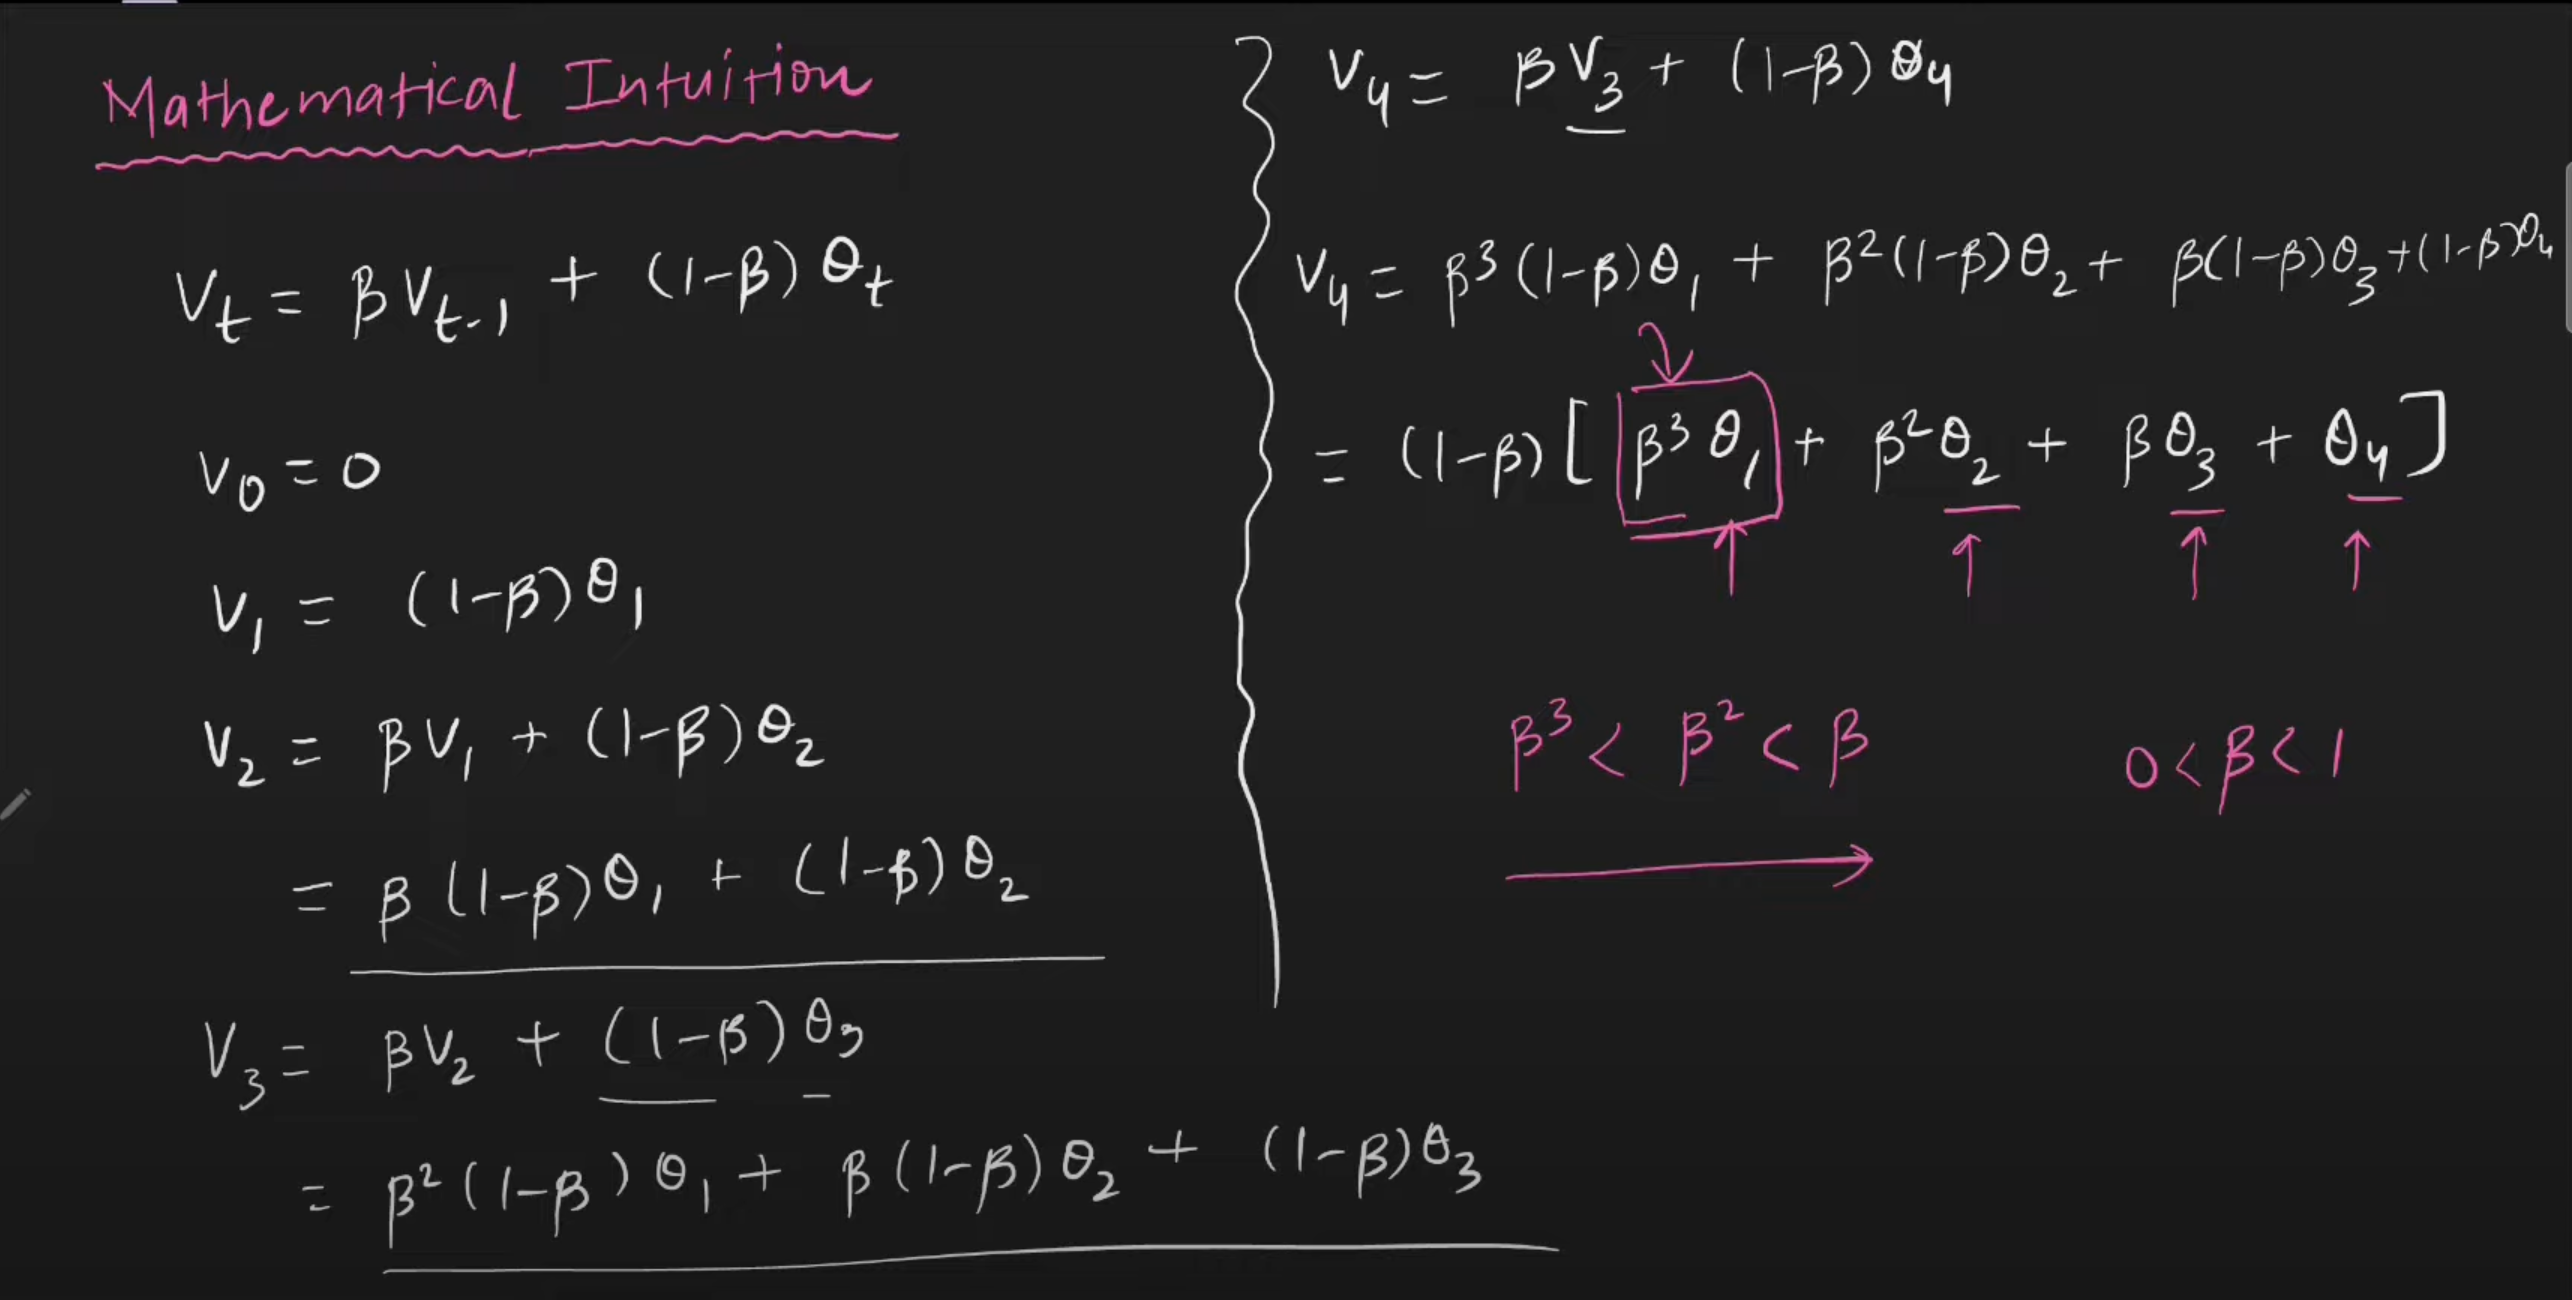 Mathematical Intuition
Vₜ = βVₜ₋₁ + (1-β) θₜ
V₀ = 0
V₁ = (1-β)θ₁
V₂ = βV₁ + (1-β)θ₂
= β (1-β)θ₁ + (1-β)θ₂
V₃ = βV₂ + (1-β)θ₃
= β²(1-β)θ₁ + β(1-β)θ₂ + (1-β)θ₃
V₄ = βV₃ + (1-β)θ₄
V₄ = β³(1-β)θ₁ + β²(1-β)θ₂ + β(1-β)θ₃ + (1-β)θ₄
= (1-β) [β³θ₁ + β²θ₂ + βθ₃ + θ₄]
β³ < β² < β 0 < β < 1